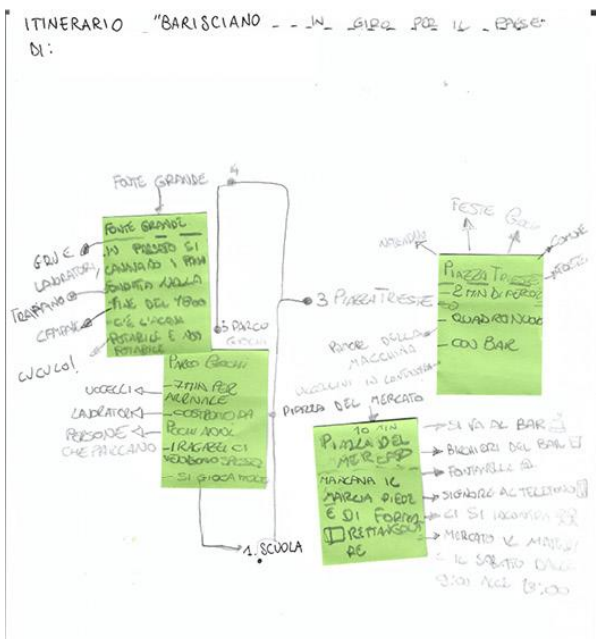 ITINERARIO "BARISCIANO - - - IN GIRO PER IL PAESE-
DI:
FONTE GRANDE
FONTE GRANDE
IN PASSATO SI
LAVAVANO I PANNI
NELLA
FINE DEL 1800
C'È L'ACQUA
POTABILE E NON
POTABILE
GRU E
LAVORATORI
TRAPANO
CEMENTO
CUCULO!
4
3 PARCO
GIOCHI
PARCO GIOCHI
- 7 MIN PER
ARRIVARE
- COSTRUITO DA
POCHI ANNI
- I RAGAZZI CI
VENGONO SPESSO
- SI GIOCA
UCCELLI
LAVORATORI
PERSONE
CHE PARLANO
3 PIAZZA TRIESTE
FESTE
GIOCHI
COMUNE
PIAZZA TRIESTE
- 2 MIN DI
- QUADRO NUOVO
- CON BAR
RUMORE DELLA
MACCHINA
UCCELLINI IN LONTANANZA
PIAZZA DEL MERCATO
10 MIN
PIAZZA DEL
MERCATO
MANCANA IL
MARCIA PIEDE
E DI FORMA
RETTANGOLA
RE
SI VA AL BAR
BICCHIERI DEL BAR
FONTANELLE
SIGNORE AL TELEFONO
CI SI INCONTRA
MERCATO IL
IL SABATO DALLE
9:00 ALLE 13:00
1. SCUOLA